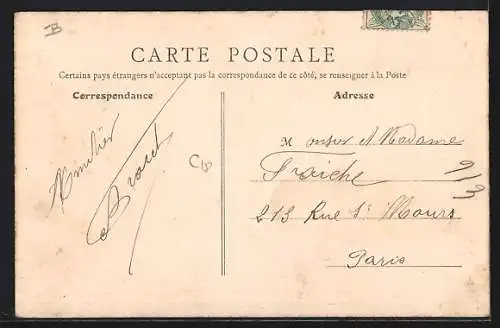 B
CARTE POSTALE
Certains pays étrangers n'acceptant pas la correspondance de ce côté, se renseigner à la Poste
Correspondance
Adresse
Monsieur et Madame
Fraiche
213 Rue St Maurs
Paris